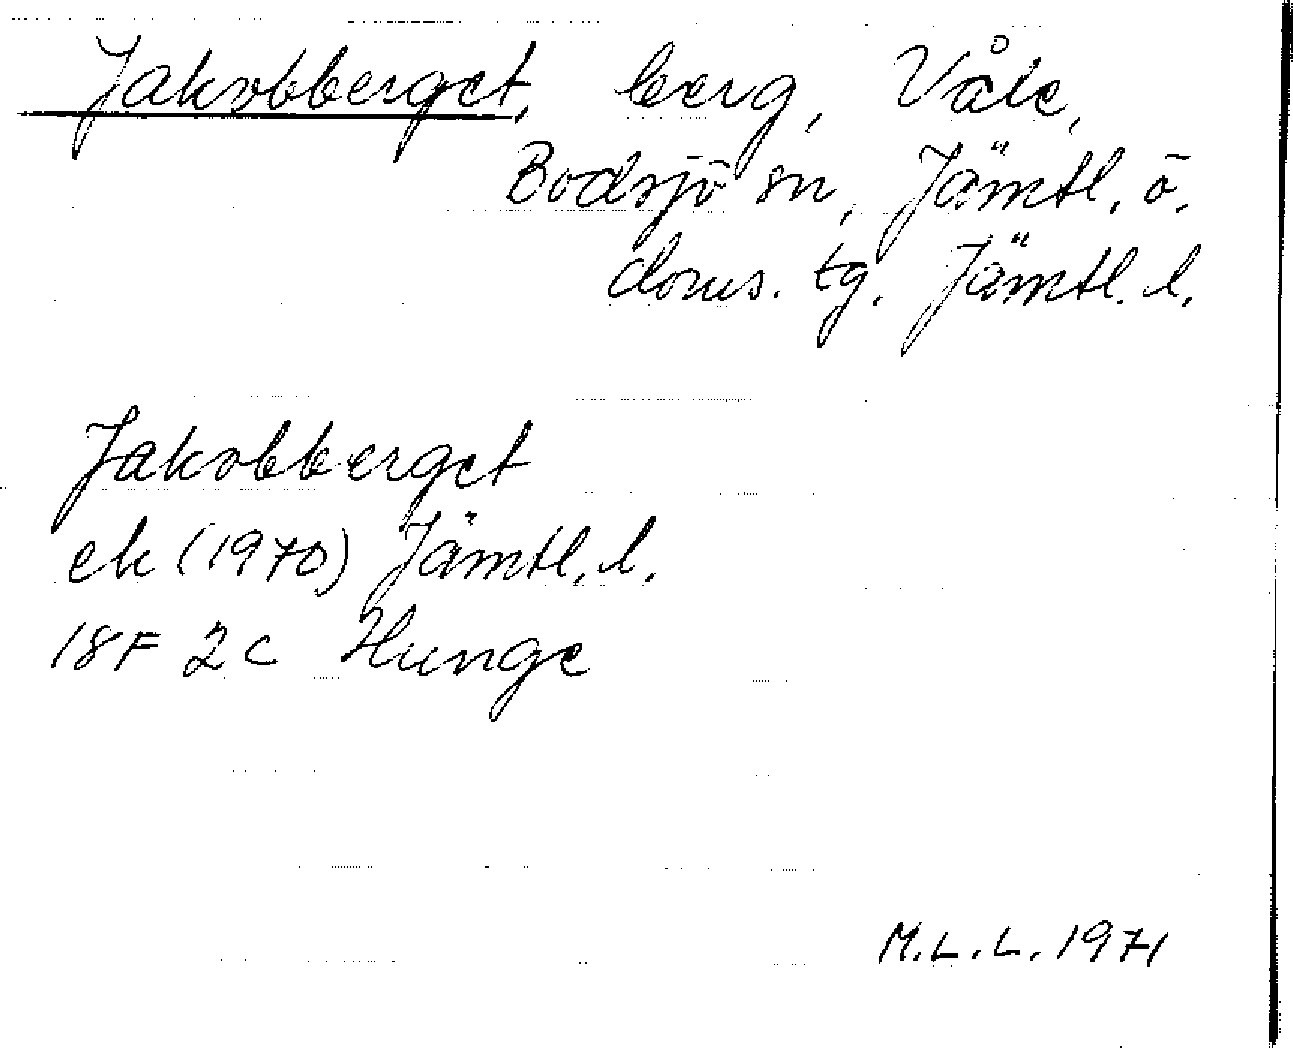 Jakobberget, berg, Våle,
Bodsjö sn, Jämtl. ö.
doms. tg. Jämtl. l.
Jakobberget
ek (1970) Jämtl. l.
18F 2c Hunge
M.L.L. 1971